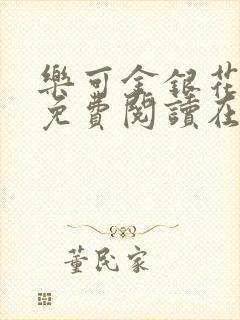 樂可金銀花
免費閱讀在
董民家